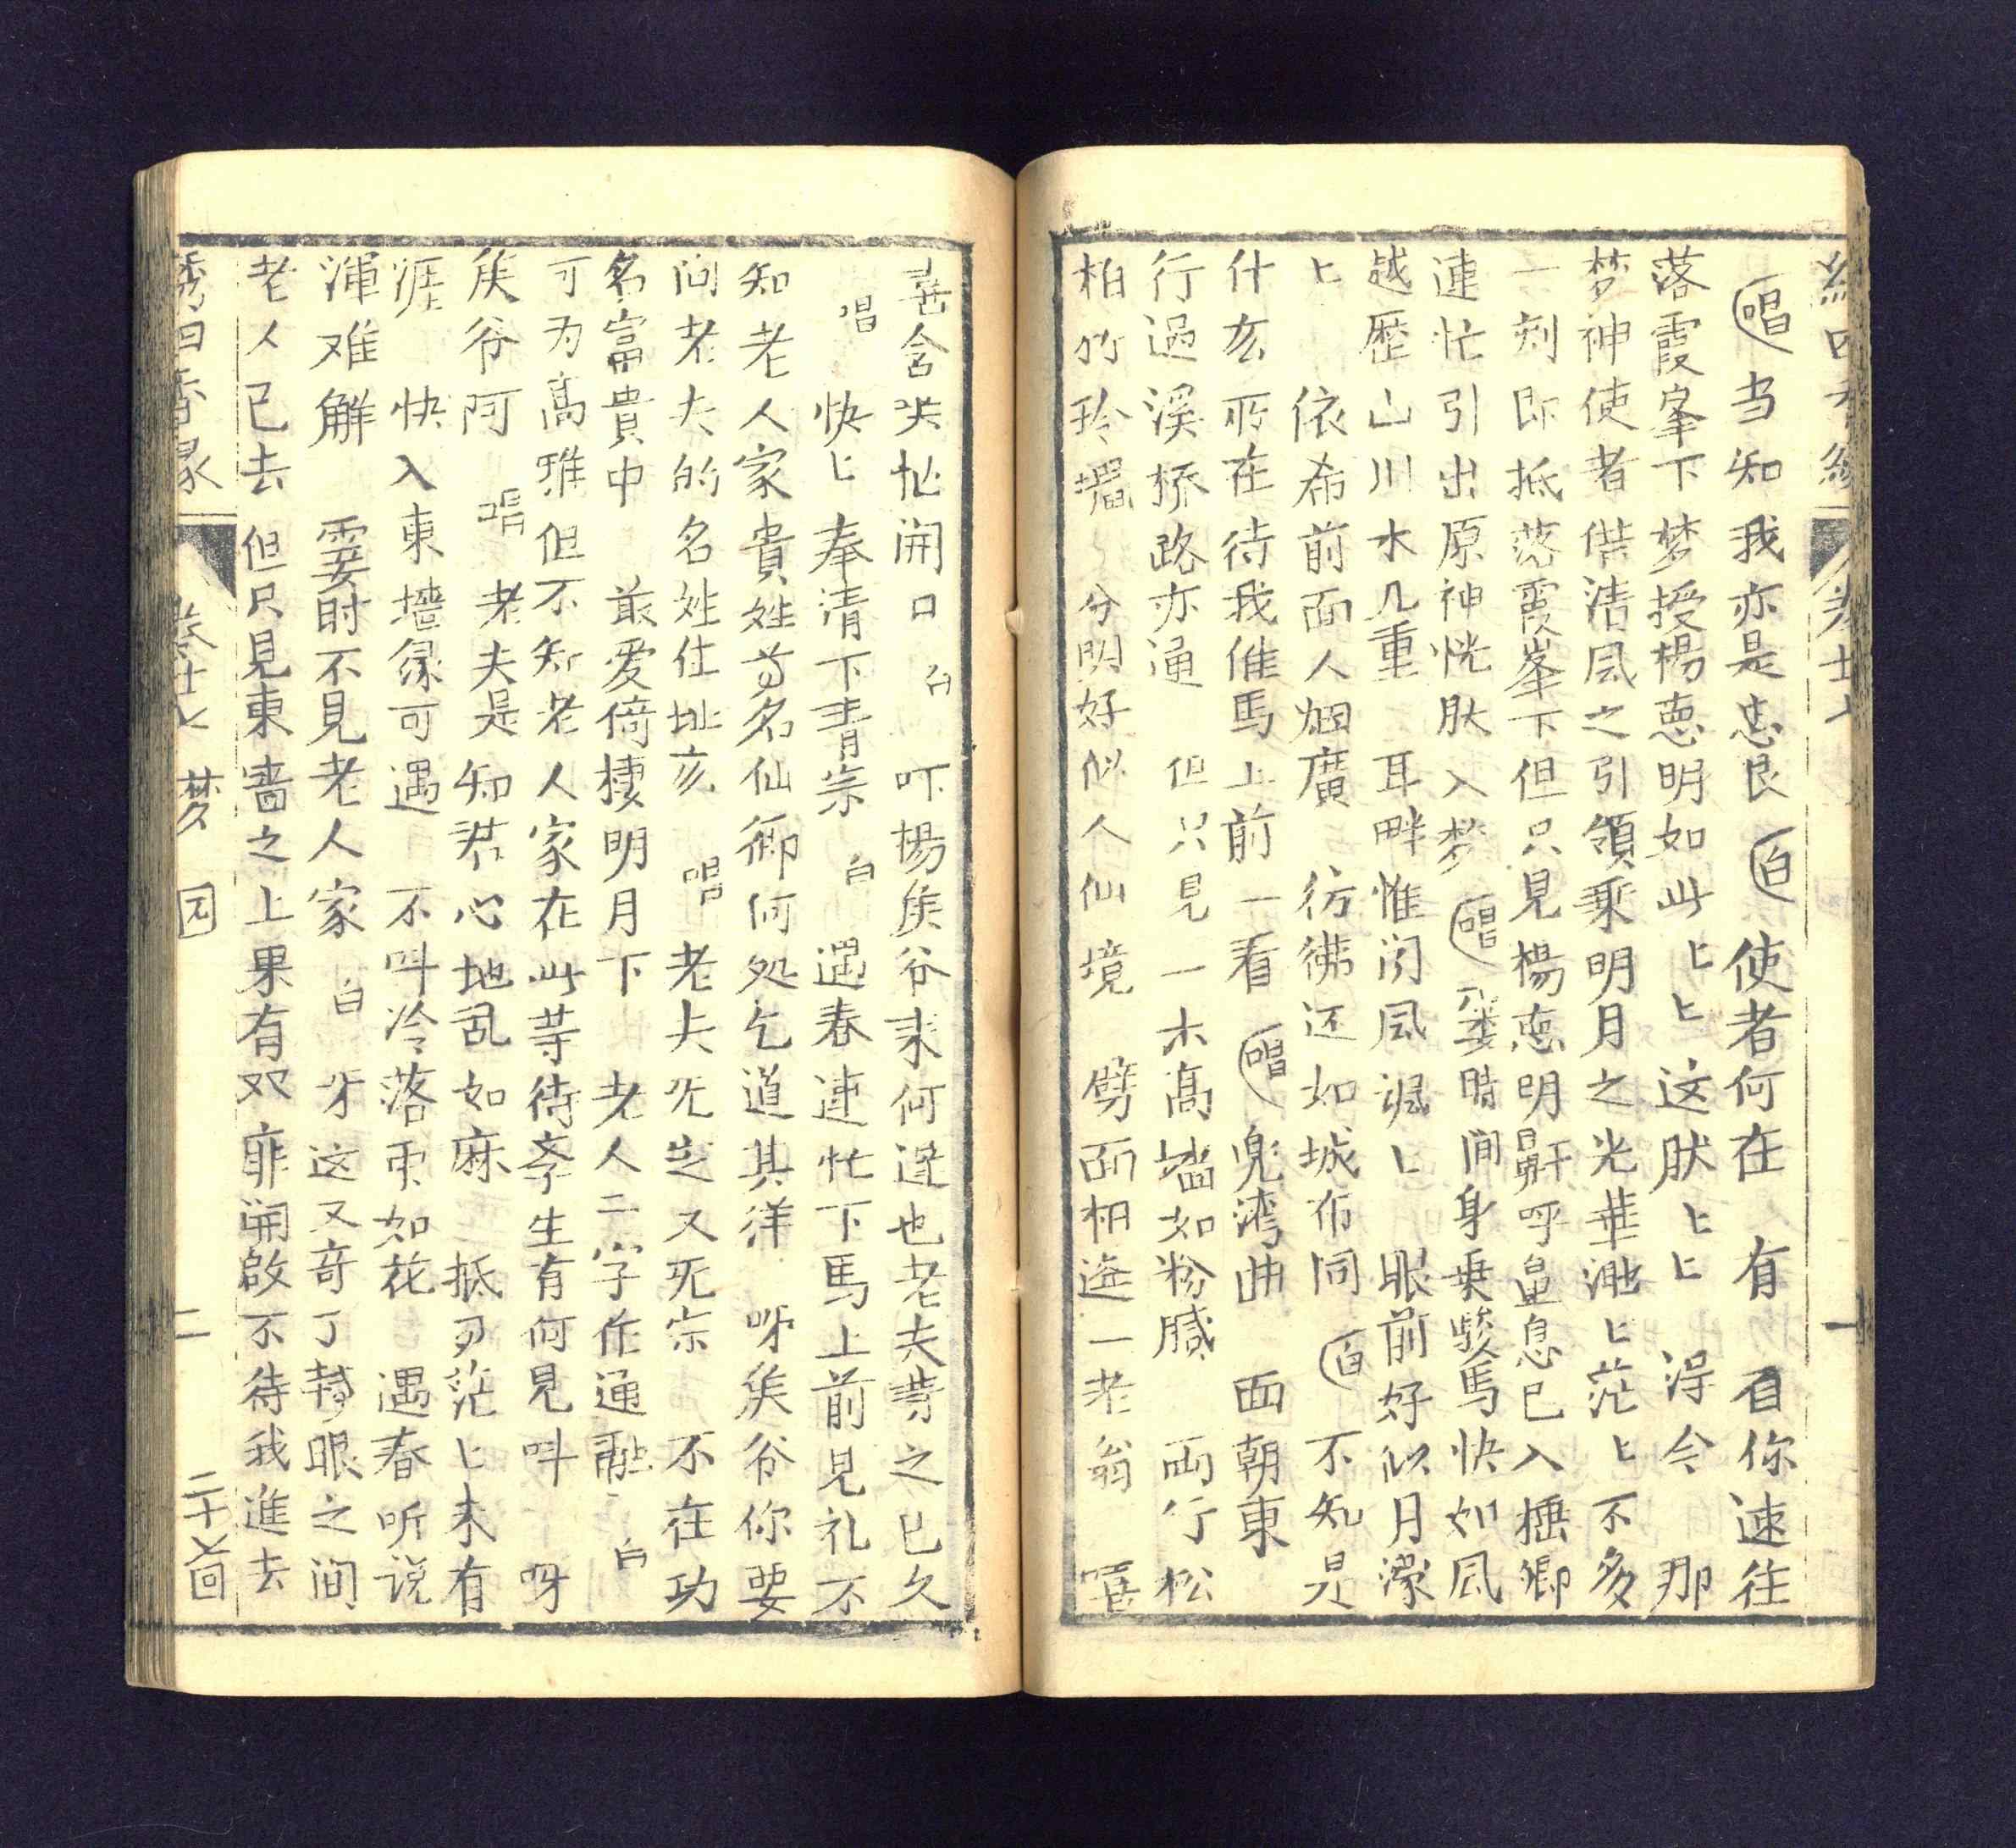 唱当知我亦是忠良白使者何在有㸔你速往
落霞峯下梦授楊惪明如此匕匕这肰匕匕淂令那
梦神使者借清風之引領乘明月之光華渺匕茫匕不多
一刻即抵落霞峯下但只見楊惪明鼾呼鼻息已入睡鄉
連忙引出原神恍肰入梦唱霎時间身乗駿馬快如風
越歷山川水几重耳畔惟闻風颯匕眼前好似月濛
匕依希前面人烟廣彷彿还如城市同白不知是
什庅所在待我催馬上前一看唱兜湾曲面朝東
行過溪桥路亦通但只見一木髙墙如粉膩両行松
柏竹玲瓏分明好似人仙境劈面相逢一老翁
喜含笑忙開口白吓楊矦爷来何迟也老夫等之已久
唱快匕奉清下青宗白遇春連忙下馬上前見礼不
知老人家貴姓尊名仙鄉何処乞道其洋呀矦爷你要
问老夫的名姓住址亥唱老夫旡定又死宗不在功
名富貴中最爱倚棲明月下老人二字作通融白
可为髙雅但不知老人家在此等待李生有何見呌呀
矦爷阿唱老夫是知君心地乱如麻抵为茫匕未有
涯快入東墻緣可遇不呌冷落雨如花遇春听说
渾难觧霎时不見老人家白呀这又竒了轉眼之间
老人已去但只見東嗇之上果有双扉開啟不待我進去
卷廿七 梦 园 二 二十七回